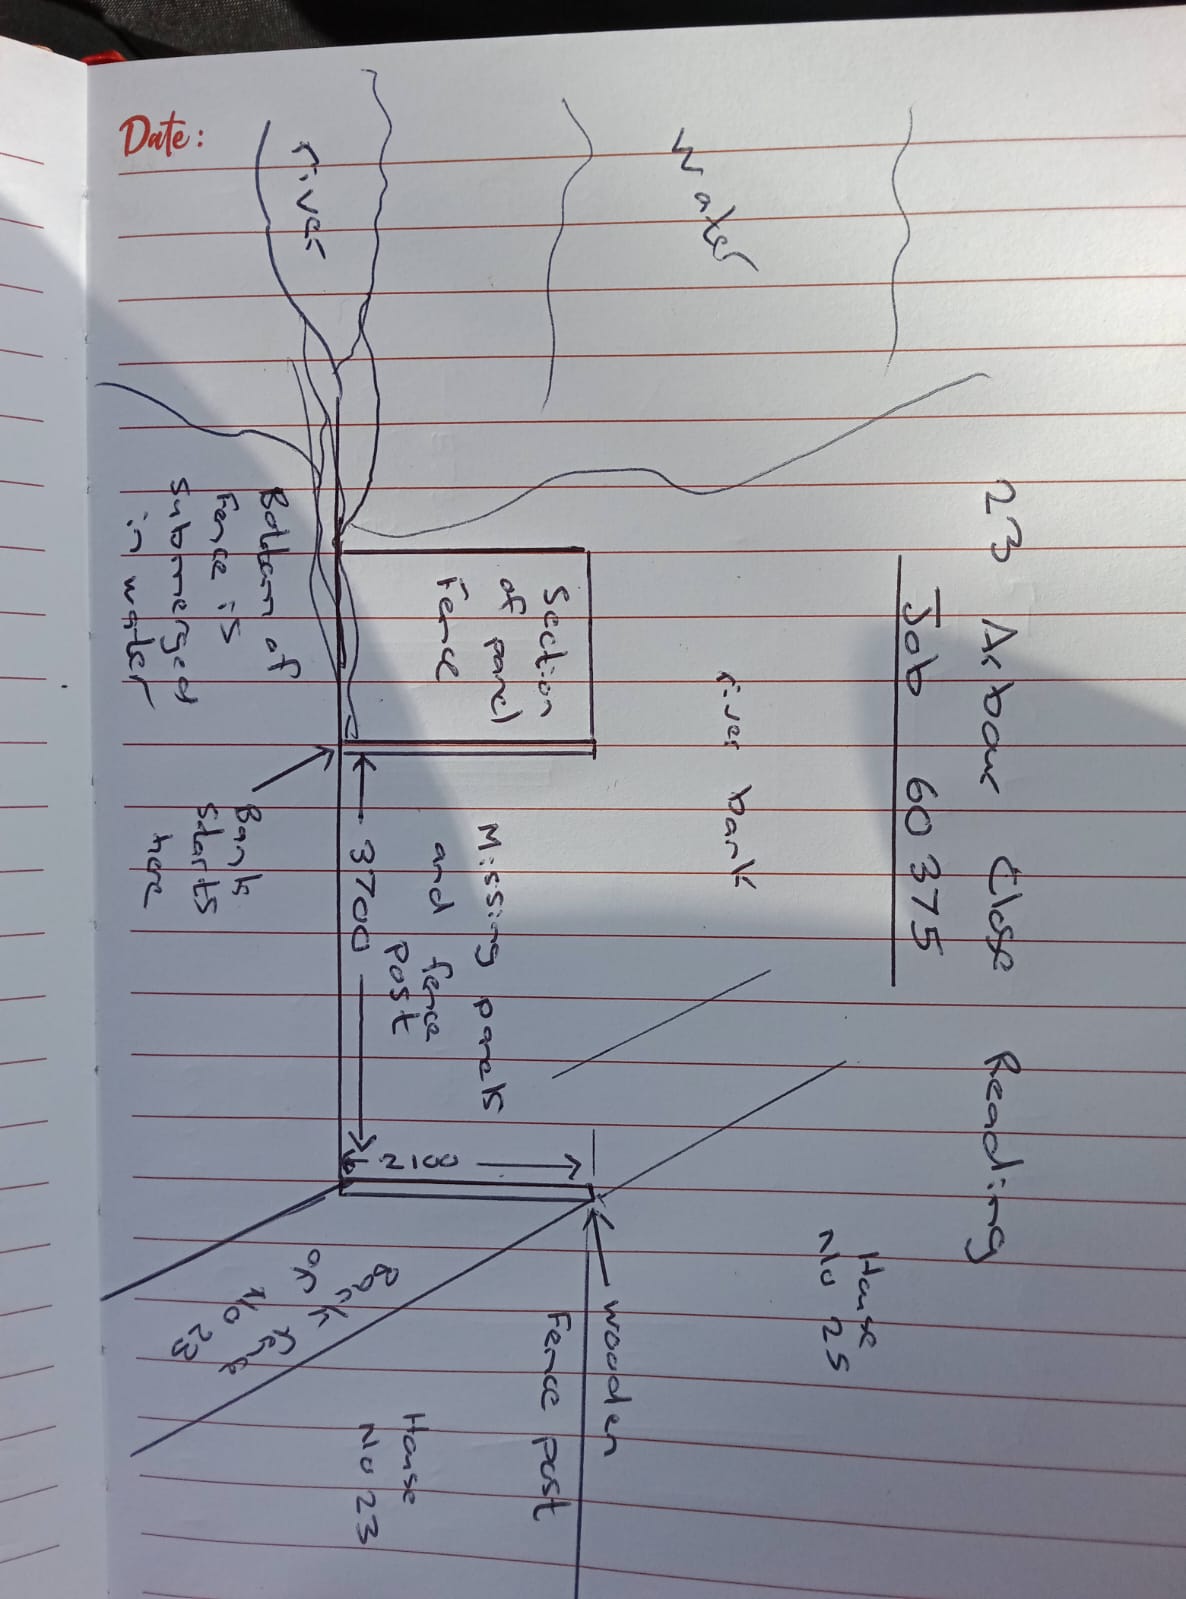 Date:
23 Arbour Close Reading
Job 60375
Water
river
river bank
Section
of panel
Fence
Missing panels
and fence
post
3700
2100
Bottom of
Fence is
submerged
in water
Bank
starts
here
wooden
Fence post
House
No 25
House
No 23
Back fence
on
No 23